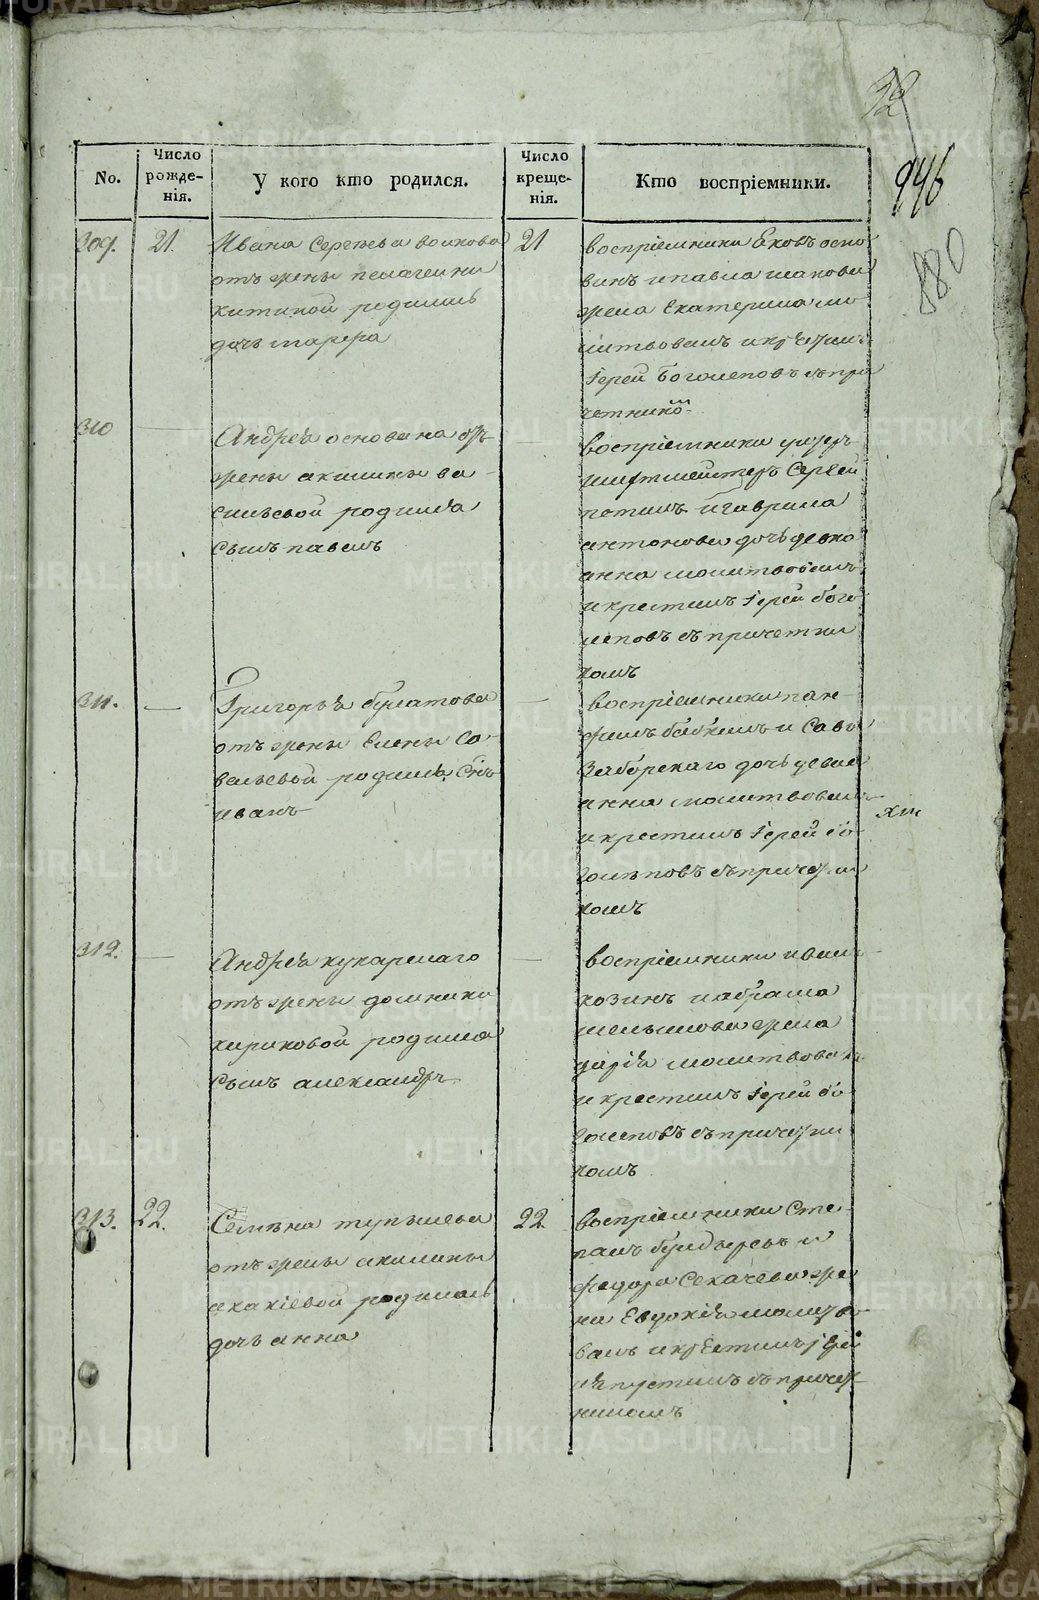 32
946
880
No.
Число рожде-нія.
У кого кто родился.
Число креще-нія.
Кто воспріемники.
309.
21
Ивана Сергѣева волкова
отъ жены пелагеи ни
китиной родилась
дочь
21
воспріемники Яковъ осно
винъ и павла
жена Екатерина мо
литвовалъ и крестилъ
Іерей Боголеповъ съ при
четнико
310
Андрея основина отъ
жены акилины ва
сильевой родился
сынъ павелъ
воспріемники унтеръ
шихтмейстеръ Сергей
и гаврила
антонова дочь девка
анна молитвовалъ
и крестилъ Іерей бого
леповъ съ причетни
комъ
311.
Григорья булатова
отъ жены Елены са
вельевой родился Снъ
иванъ
воспріемники пан
филъ бабкинъ и Савы
Заборскаго дочь девка
анна молитвовалъ
и крестилъ Іерей бо
голѣповъ съ причетни
комъ
312.
Андрея кукарскаго
отъ жены домники
кириковой родился
сынъ александръ
воспріемники иванъ
козинъ и абрама
мельникова жена
дарья молитвовалъ
и крестилъ Іерей бо
голеповъ съ причетни
комъ
313.
22.
Семена тупылева
отъ жены акилины
акакіевой родилась
дочь анна
22
воспріемники Сте
панъ и
федора Секачева же
на Евдокия молитво
валъ и крестилъ іерей
съ причет
никомъ
METRIKI.GASO-URAL.RU